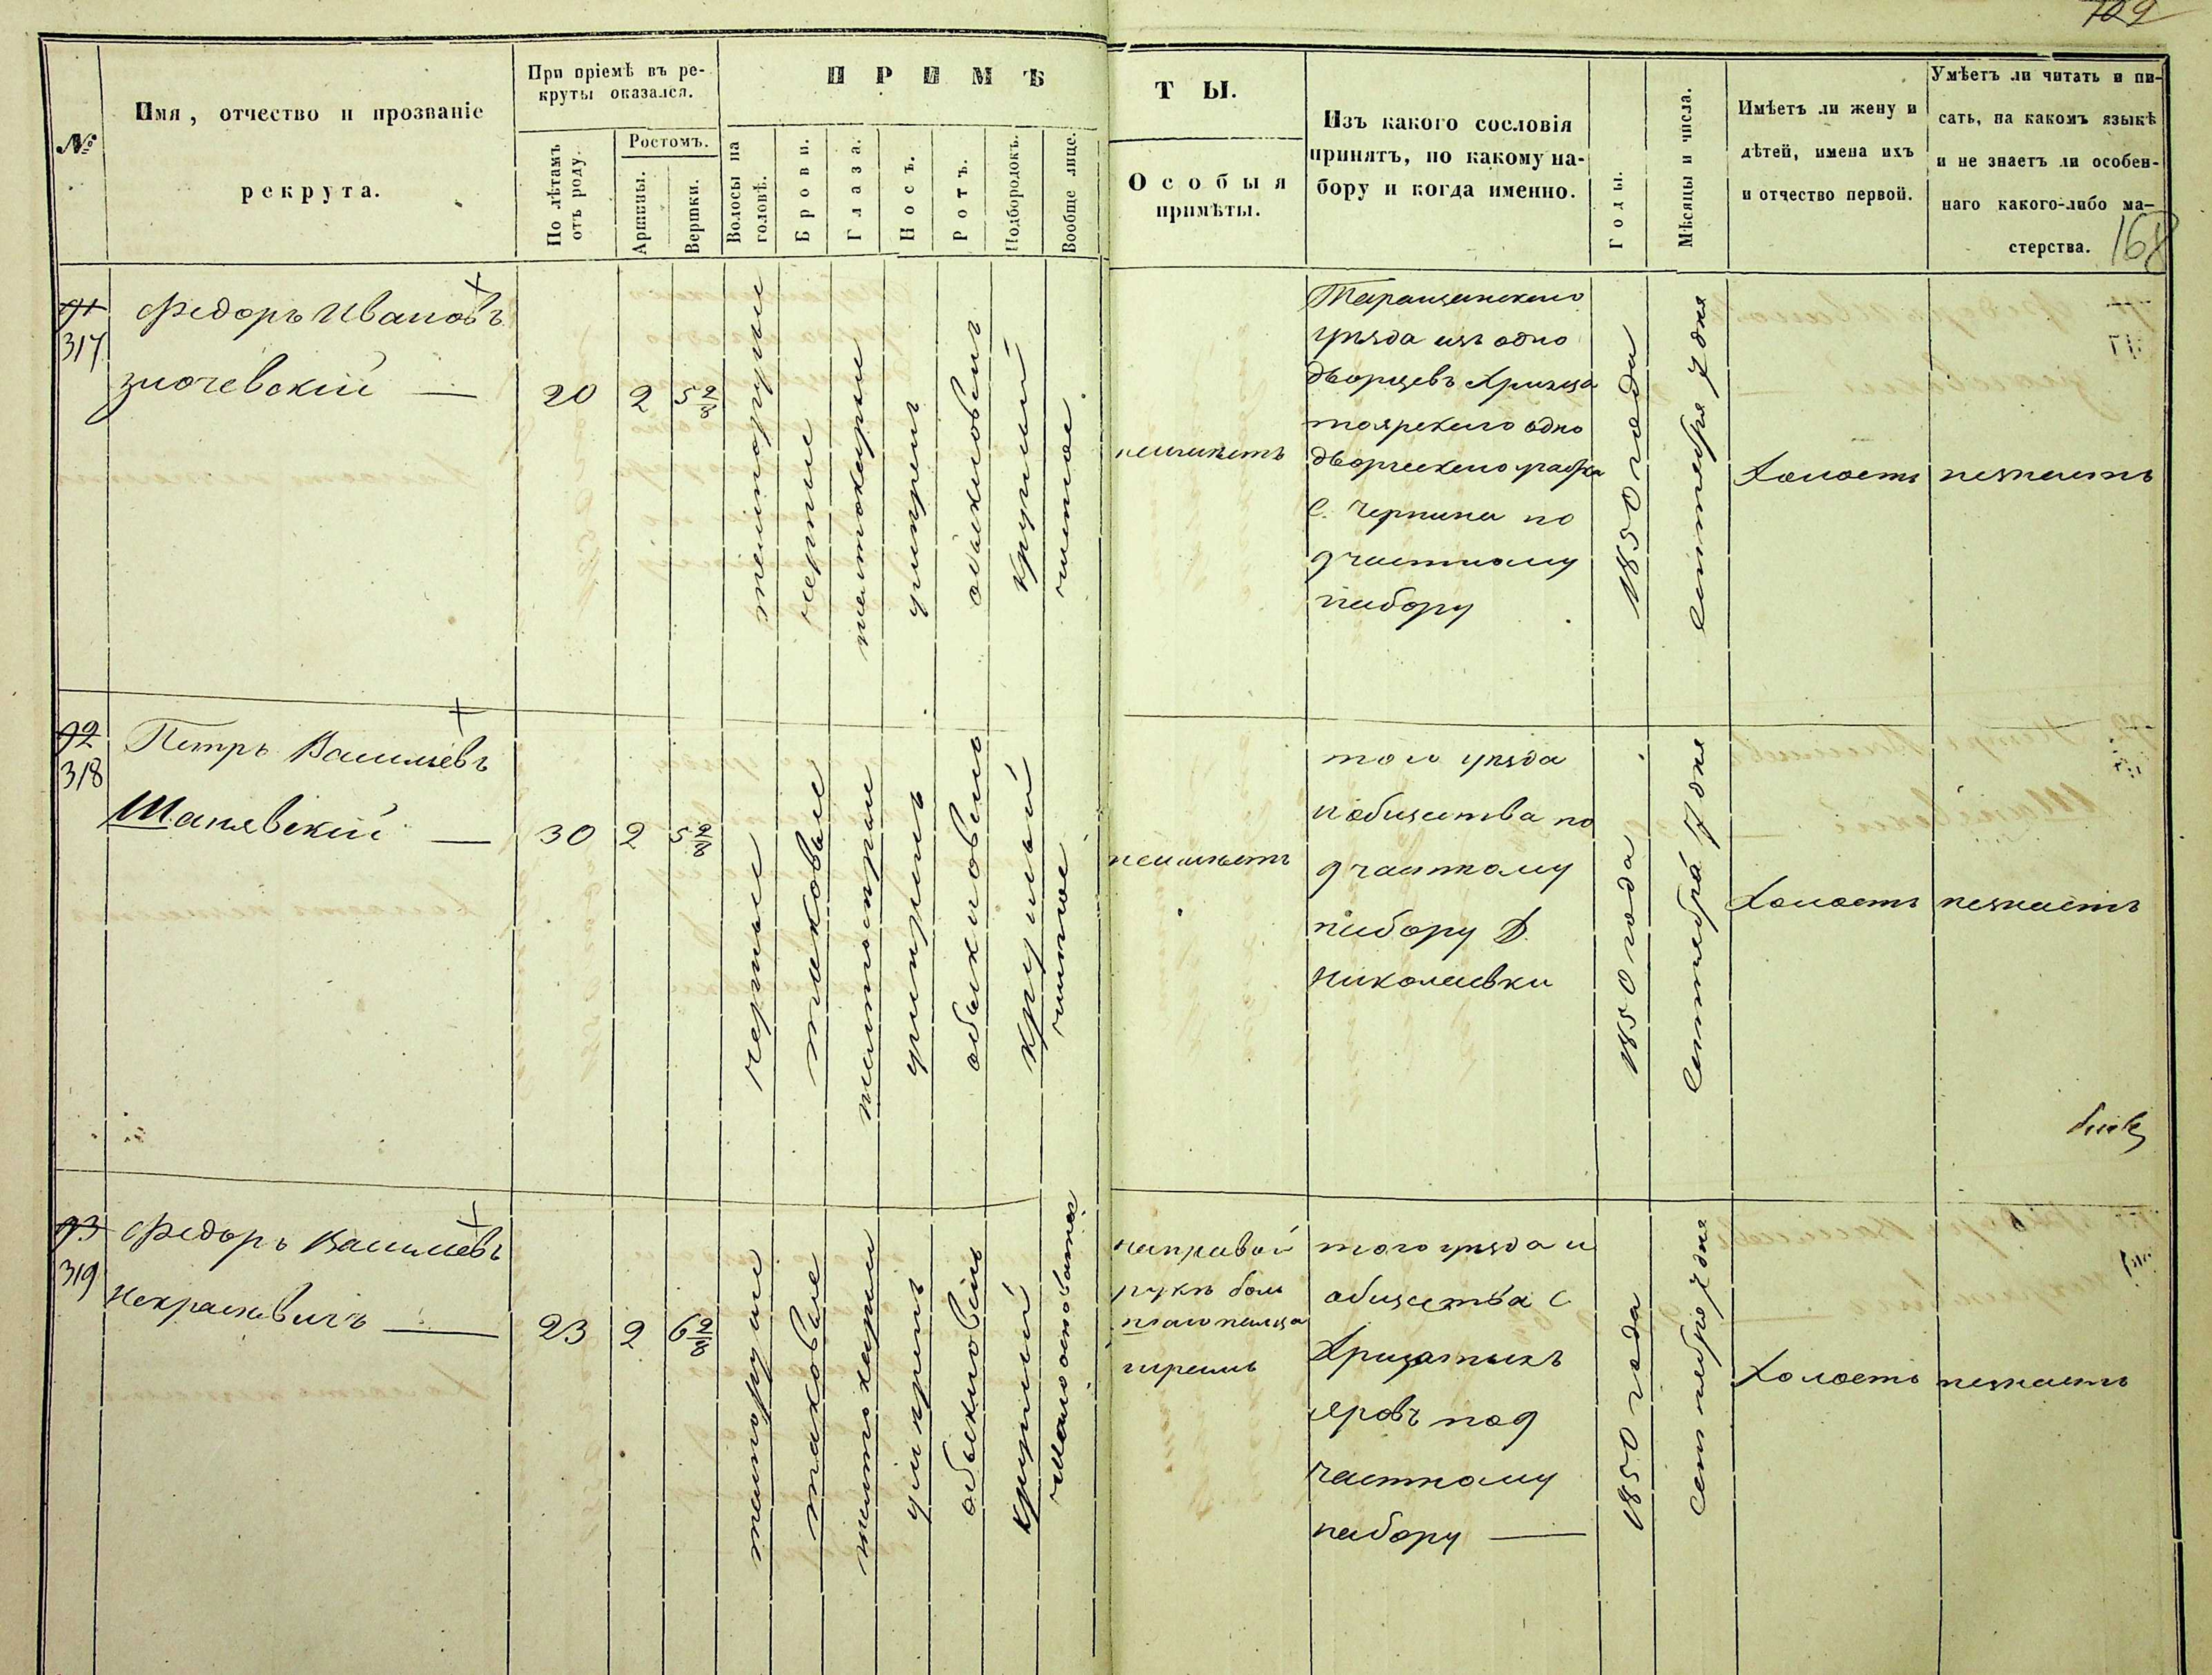 102
168
№
Имя, отчество и прозваніе
рекрута.
При пріемѣ въ ре-
круты оказался.
По лѣтамъ
отъ роду.
Ростомъ.
Аршины.
Вершки.
ПРИМѢ
ТЫ.
Волосы на
головѣ.
Брови.
Глаза.
Носъ.
Ротъ.
Подбородокъ.
Вообще лице.
Особыя
примѣты.
Изъ какого сословія
принятъ, по какому на-
бору и когда именно.
Годы.
Мѣсяцы и числа.
Имѣетъ ли жену и
дѣтей, имена ихъ
и отчество первой.
Умѣетъ ли читать и пи-
сать, на какомъ языкѣ
и не знаетъ ли особен-
наго какого-либо ма-
стерства.
91
317
Федоръ Ивановъ
Злочевскій —
20
2
5 2/8
темнорусые
черные
умѣренъ
обыкновенъ
круглый
чистое
неимѣетъ
Таращанского
уѣзда изъ одно
дворцевъ
одно
дворческого
с. Чернина по
9 частному
набору
1850 года
Сентебря 7 дня
Холостъ
незнаетъ
92
318
Петръ Васильевъ
Шанявскій —
30
2
5 2/8
черные
таковые
умѣренъ
обыкновенъ
круглый
чистое
неимѣетъ
того уѣзда
и общества по
9 частному
набору Д.
Николаевки
1850 года
Сентебра 7 дня
Холостъ
незнаетъ
93
319
Федоръ Васильевъ
Некрашевичъ —
23
2
6 2/8
темнорусые
таковые
умѣренъ
обыкновенъ
круглый
малоосповатое
направой
рукѣ боль
шого пальца
шрамъ
того уѣзда и
общества с
яровъ по 9
частному
набору —
1850 года
Сентебрю 7 дня
Холостъ
незнаетъ